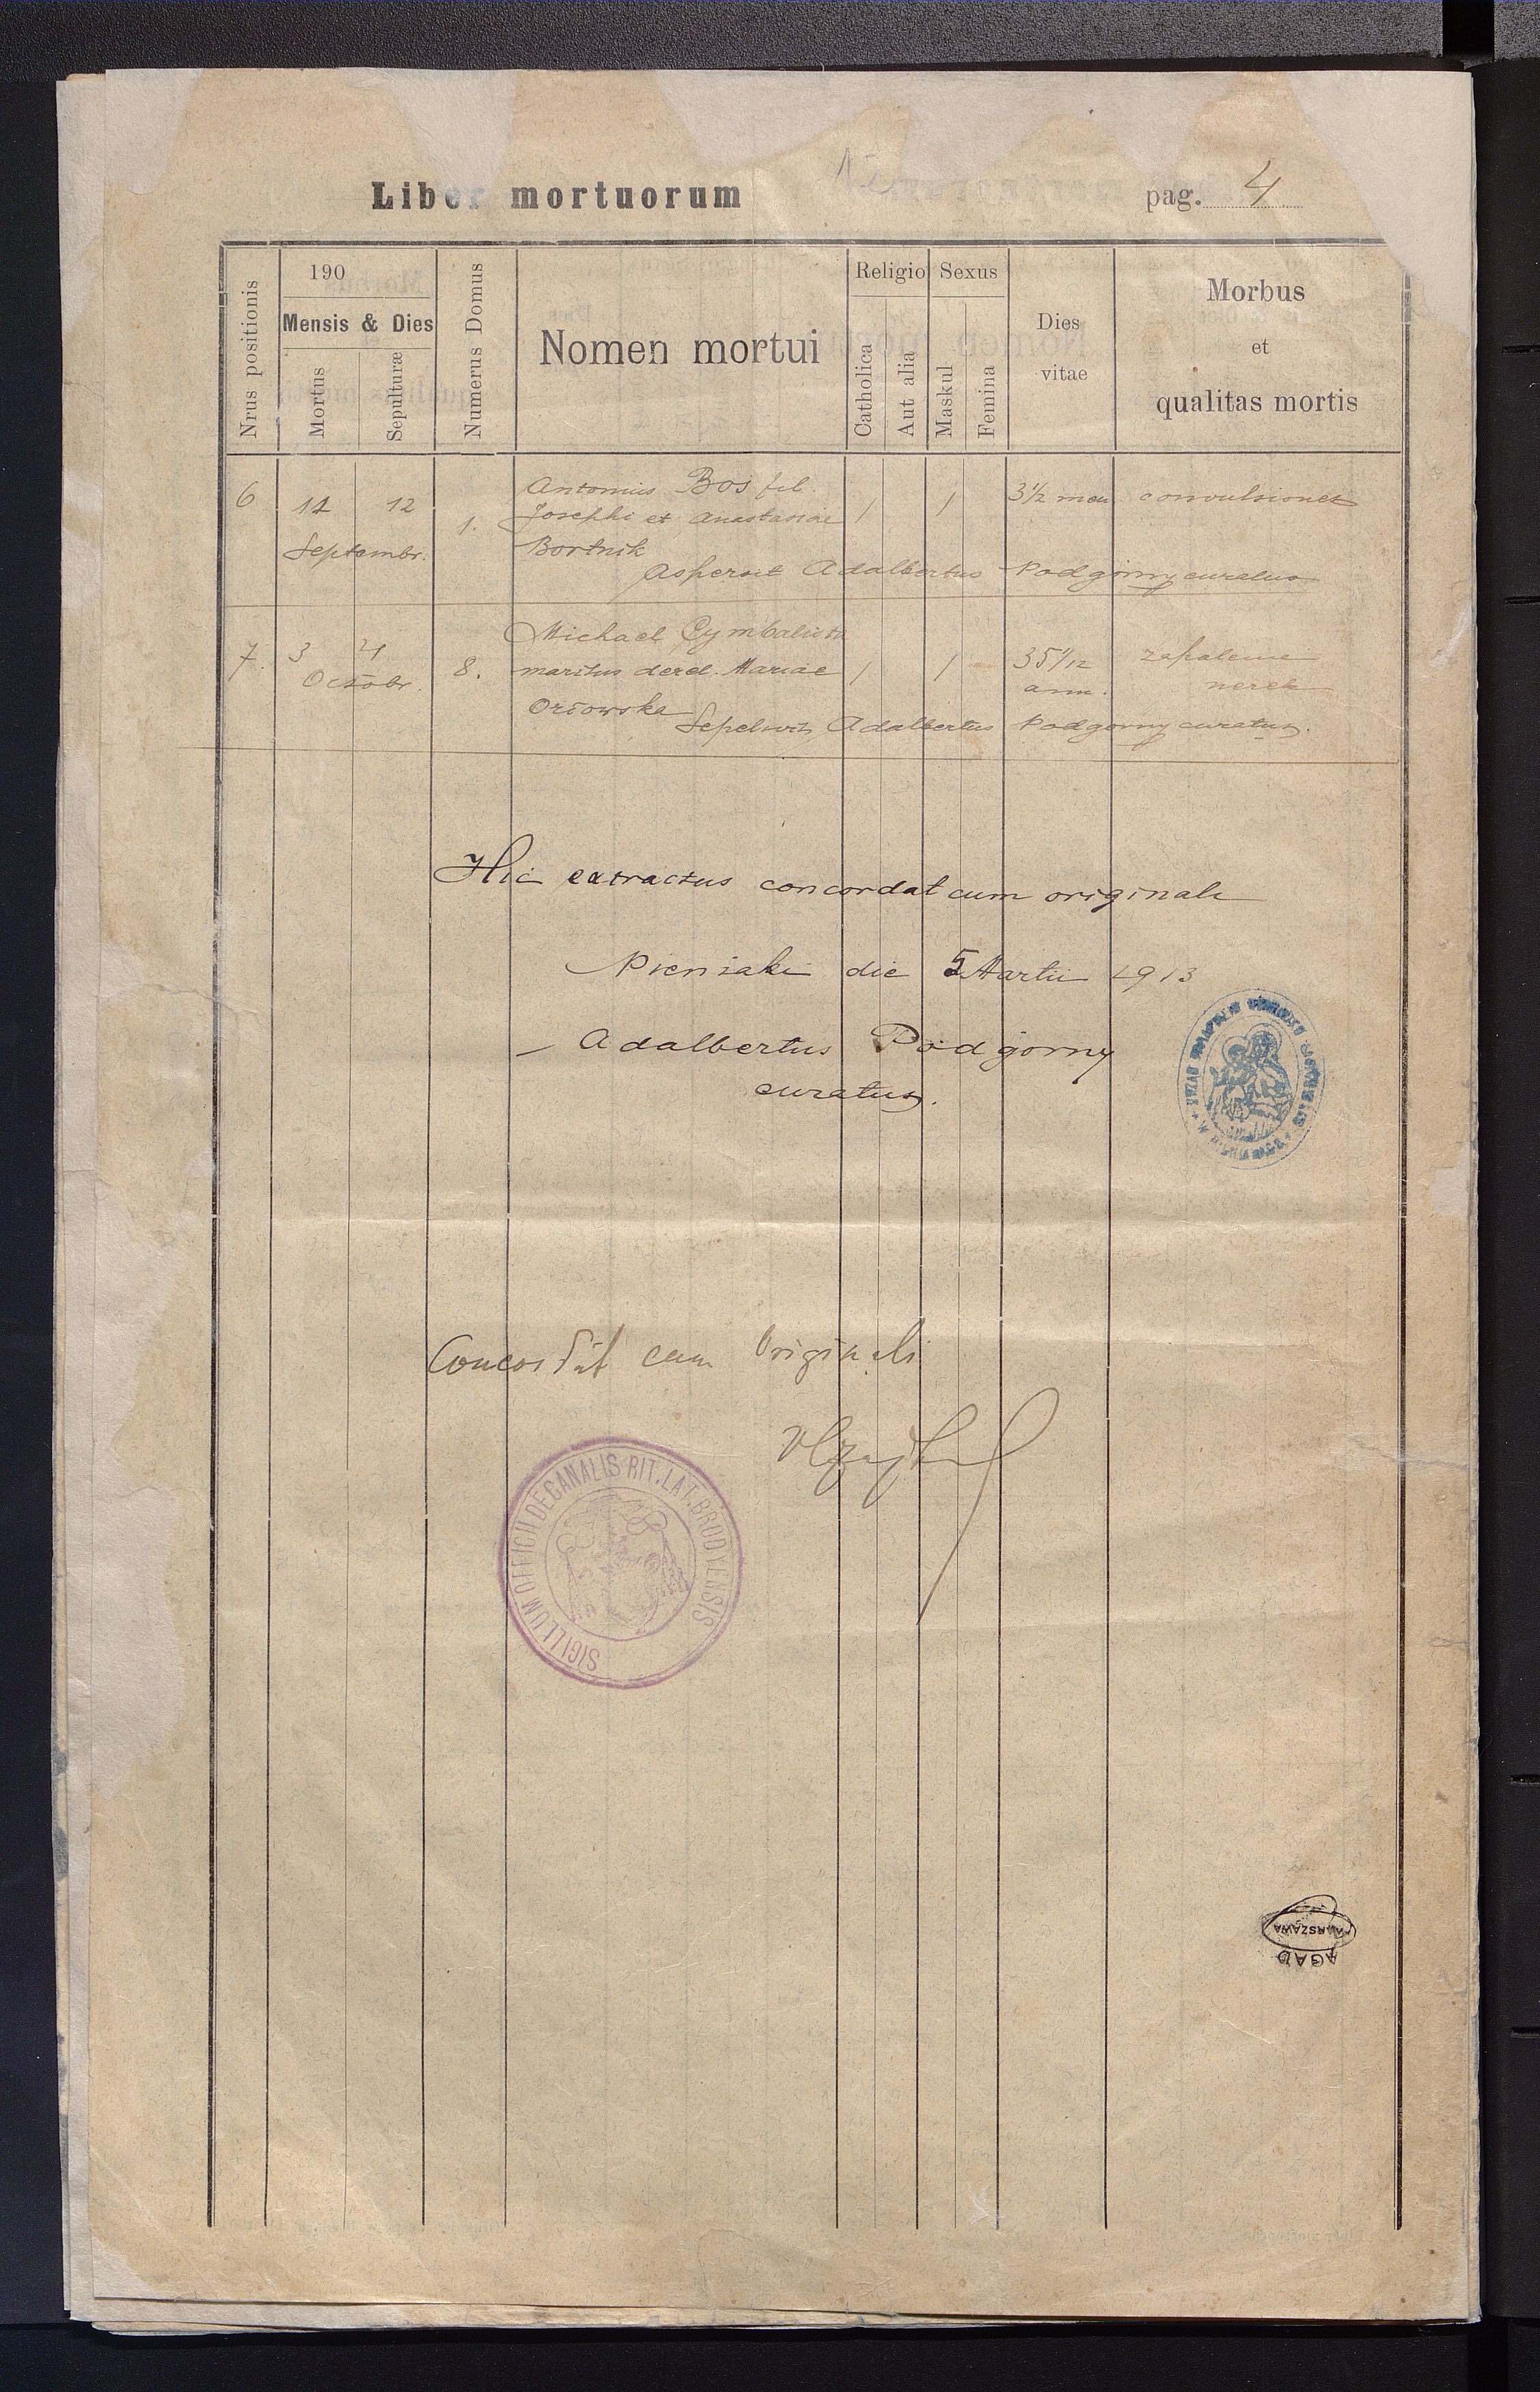 Liber mortuorum
pag. 4
Nrus positionis
190
Mensis & Dies
Mortus
Sepulturæ
Numerus Domus
Nomen mortui
Religio
Catholica
Aut alia
Sexus
Maskul
Femina
Dies
vitae
Morbus
et
qualitas mortis
6 11 12 Septembr. 1.
Antonius Bos fil.
Josephi et Anastasiae
Bortnik
1 1 3 1/2 men convulsiones
Aspersit Adalbertus Podgórny curatus
7. 3 4 Octobr. 8.
Michael Cymbalista
maritus derel. Mariae
Orłowska
1 1 35 1/12 ann. zapalenie
nerek
Sepelivit Adalbertus Podgorny curatus.
Hic extractus concordat cum originale
Pieniaki die 5 Martii 1913
Adalbertus Podgórny
curatus.
Concordat cum Originali
SIGILLUM OFFICII DECANALIS RIT. LAT. BRODYENSIS
WARSZAWA
AGAD